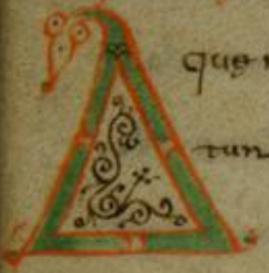 A
que
tun